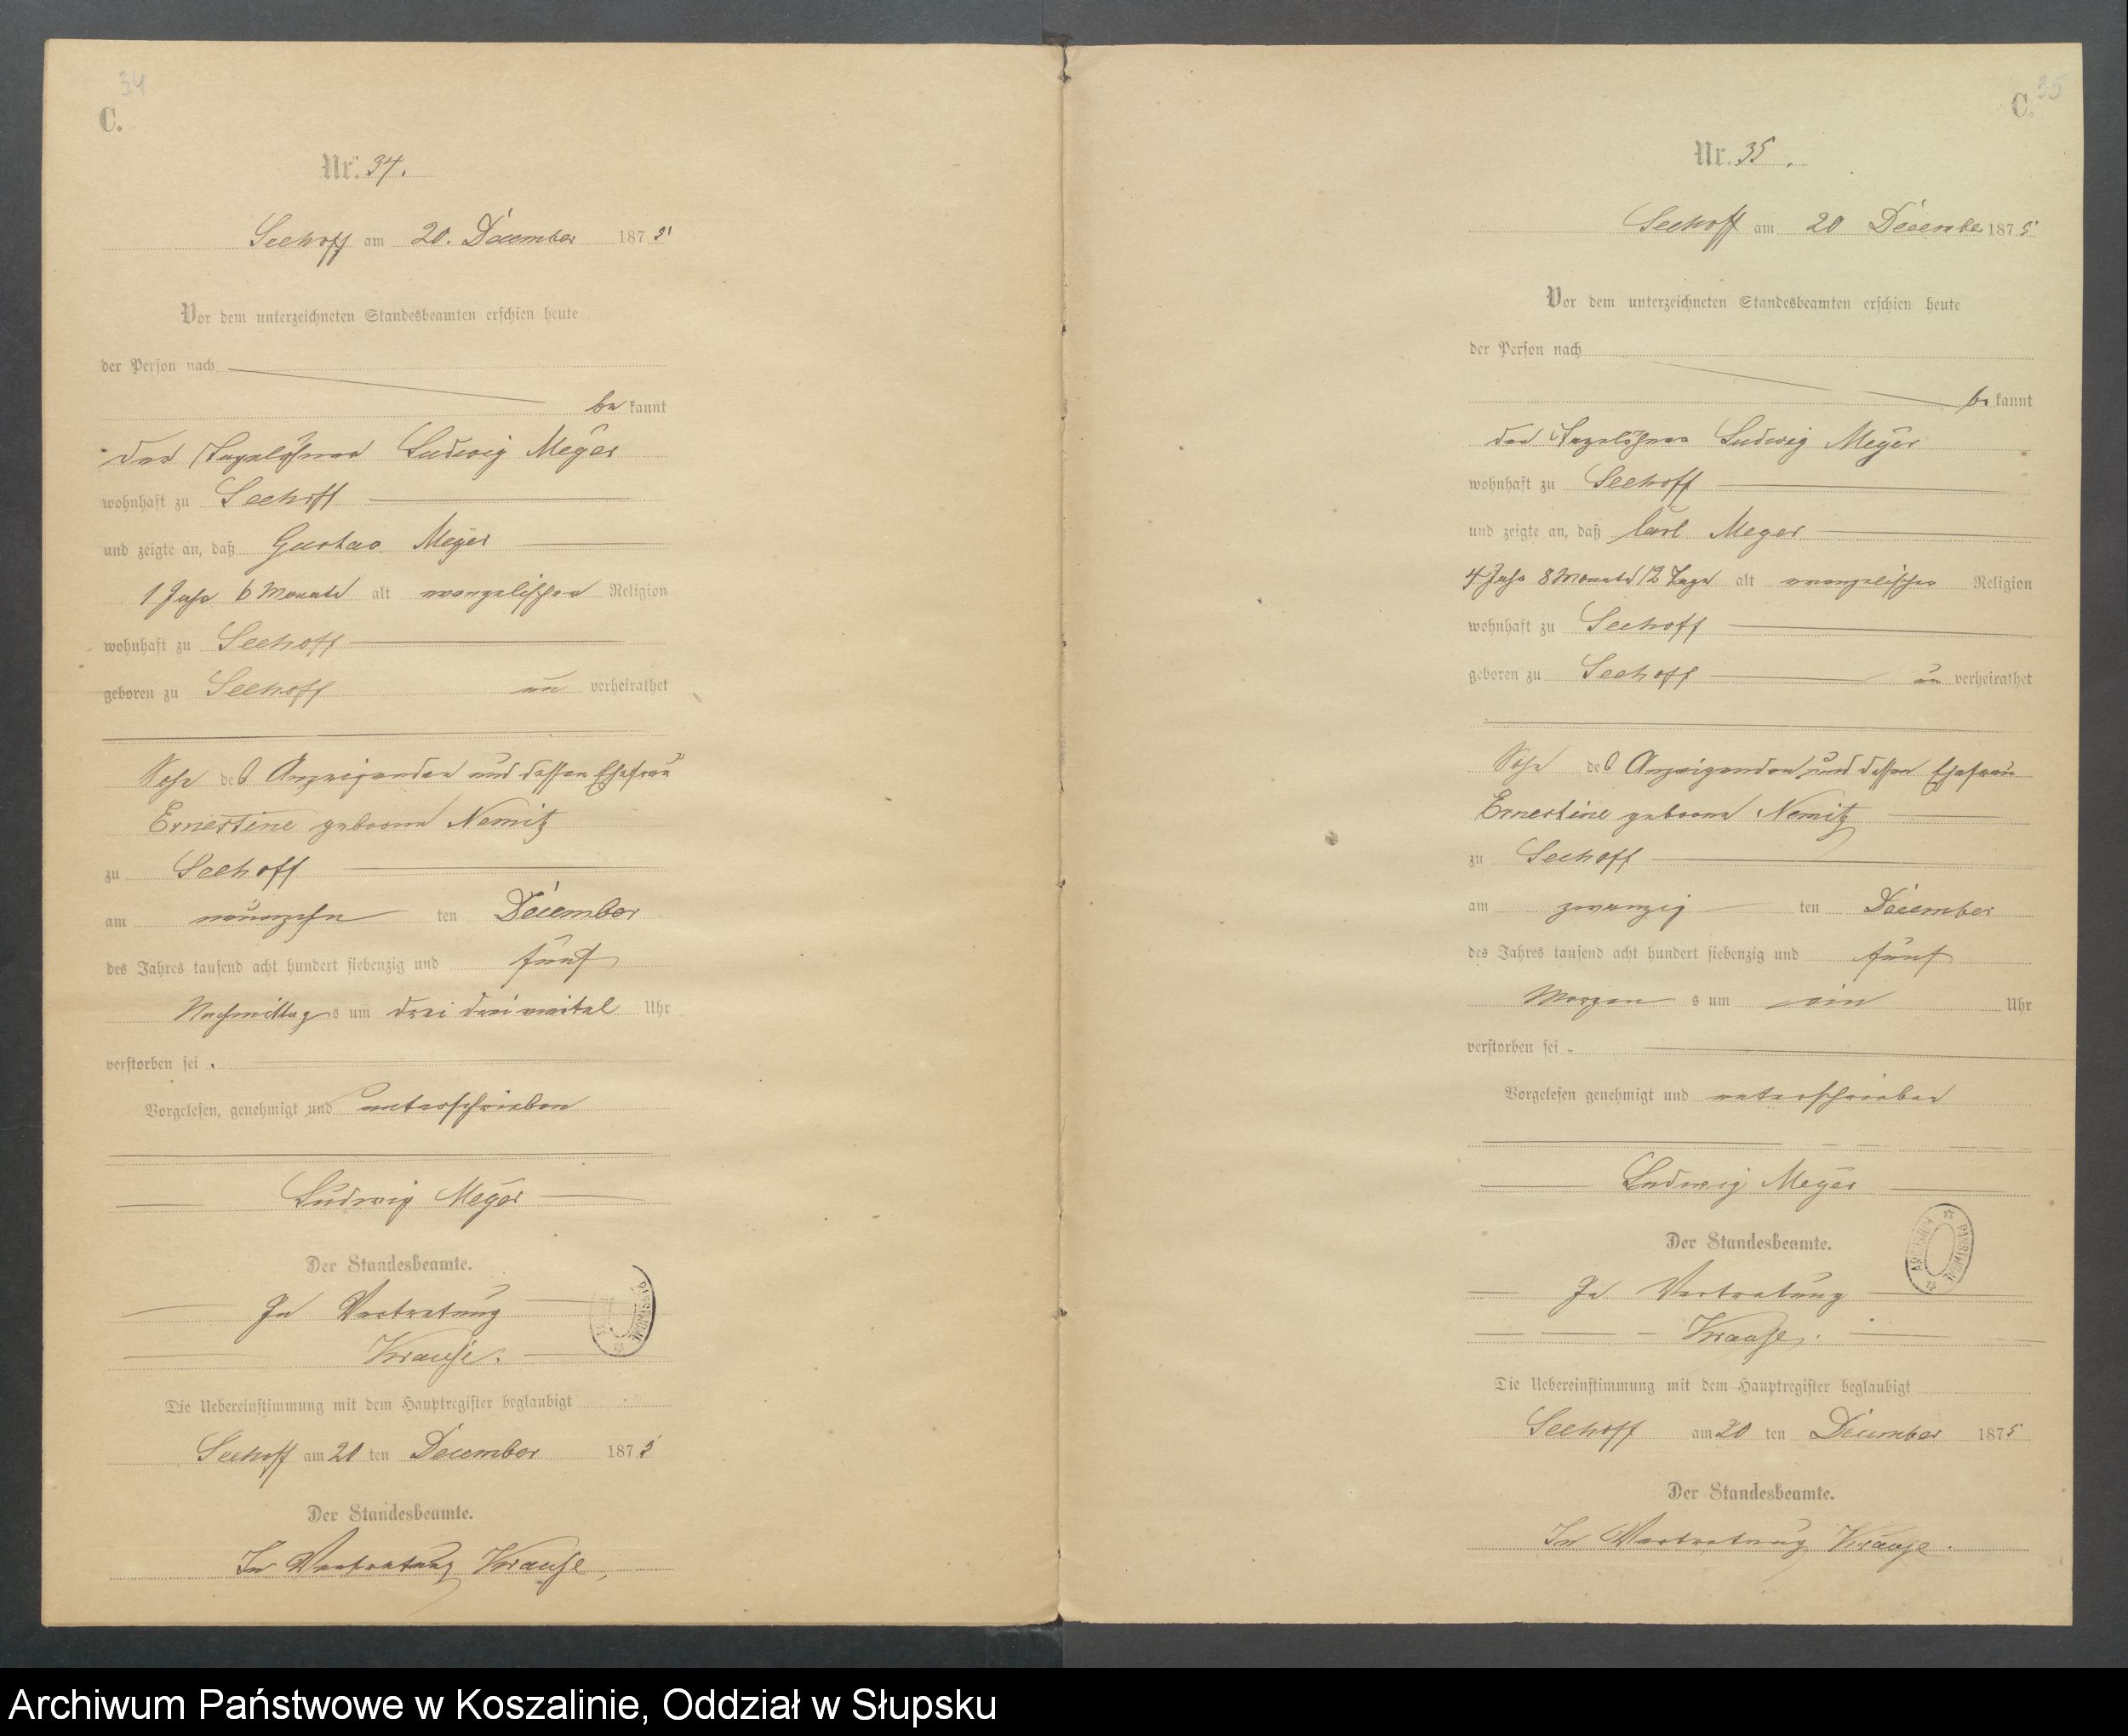 34
C.
Nr. 34.
Seehoff am 20. December 1875
Vor dem unterzeichneten Standesbeamten erschien heute
der Person nach
bekannt
der Tagelöhner Ludwig Meyer
wohnhaft zu Seehoff
und zeigte an, daß Gustav Meyer
1 Jahr 6 Monate alt evangelischer Religion
wohnhaft zu Seehoff
geboren zu Seehoff unverheirathet
Sohn des Anzeigenden und dessen Ehefrau
Ernestine geborne Nemitz
zu Seehoff
am neunzehn ten December
des Jahres tausend acht hundert siebenzig und fünf
Nachmittags um drei dreiviertel Uhr
verstorben sei.
Vorgelesen, genehmigt und unterschrieben
Ludwig Meyer
Der Standesbeamte.
In Vertretung
Krause.
Die Uebereinstimmung mit dem Hauptregister beglaubigt
Seehoff am 20 ten December 1875
Der Standesbeamte.
In Vertretung Krause,
35
C.
Nr. 35.
Seehoff am 20 December 1875
Vor dem unterzeichneten Standesbeamten erschien heute
der Person nach
bekannt
der Tagelöhner Ludwig Meyer
wohnhaft zu Seehoff
und zeigte an, daß Carl Meyer
4 Jahr 8 Monate 12 Tage alt evangelischer Religion
wohnhaft zu Seehoff
geboren zu Seehoff unverheirathet
Sohn des Anzeigenden und dessen Ehefrau
Ernestine geborne Nemitz
zu Seehoff
am zwanzig ten December
des Jahres tausend acht hundert siebenzig und fünf
Morgens um ein Uhr
verstorben sei.
Vorgelesen genehmigt und unterschrieben
Ludwig Meyer
Der Standesbeamte.
In Vertretung
Krause.
Die Uebereinstimmung mit dem Hauptregister beglaubigt
Seehoff am 20 ten December 1875
Der Standesbeamte.
In Vertretung Krause.
Archiwum Państwowe w Koszalinie, Oddział w Słupsku